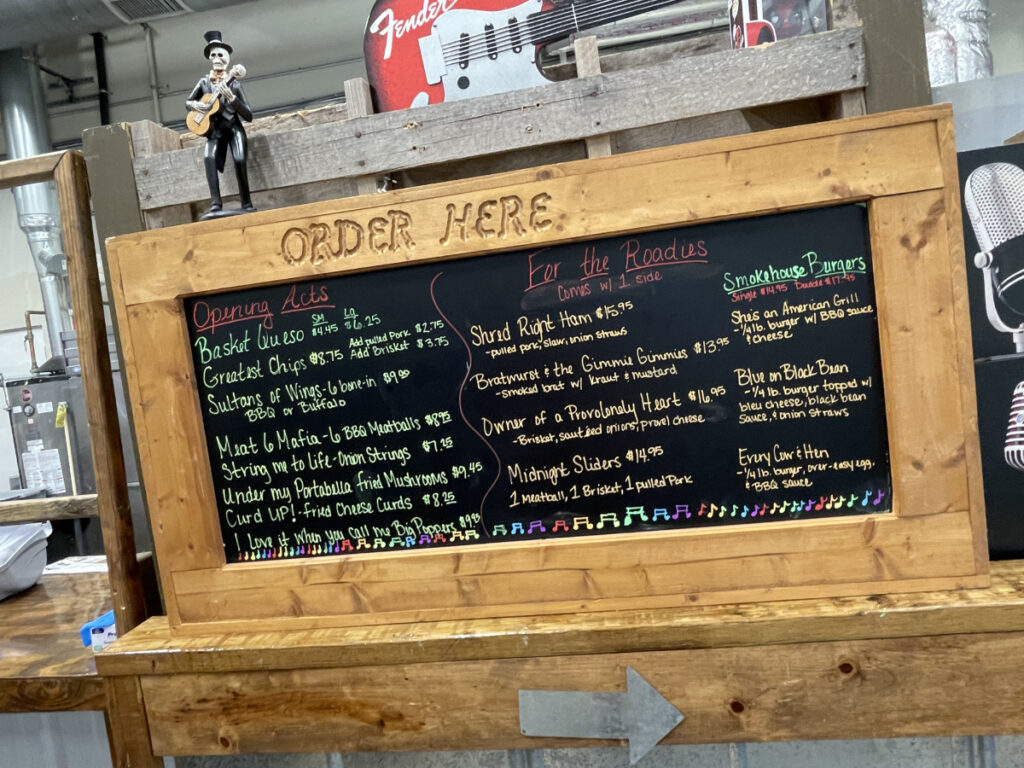 Fender
ORDER HERE
Opening Acts
SM LG
Basket Queso $4.45 $6.25
Greatest Chips $8.75 Add pulled Pork $2.75
Add Brisket $3.75
Sultans of Wings - 6 bone-in $9.99
BBQ or Buffalo
Meat 6 Mafia - 6 BBQ Meatballs $8.95
String me to Life - Onion Strings $7.25
Under my Portabella fried Mushrooms $9.45
Curd UP! - fried Cheese Curds $8.25
I love it when you call me Big Poppers $9.95
For the Roadies
Comes w/ 1 side
Shred Right Ham $15.95
- pulled pork, slaw, onion straws
Bratwurst & the Gimmie Gimmies $13.95
- smoked brat w/ kraut & mustard
Owner of a Provolonely Heart $16.95
- Brisket, sauteed onions, provel cheese
Midnight Sliders $14.95
1 Meatball, 1 Brisket, 1 pulled Pork
Smokehouse Burgers
Single $14.95 Double $17.95
She's an American Grill
- 1/4 lb. burger w/ BBQ sauce
& cheese
Blue on Black Bean
- 1/4 lb. burger topped w/
bleu cheese, black bean
sauce, & onion straws
Every Cow & Hen
- 1/4 lb. burger, over-easy egg,
& BBQ sauce